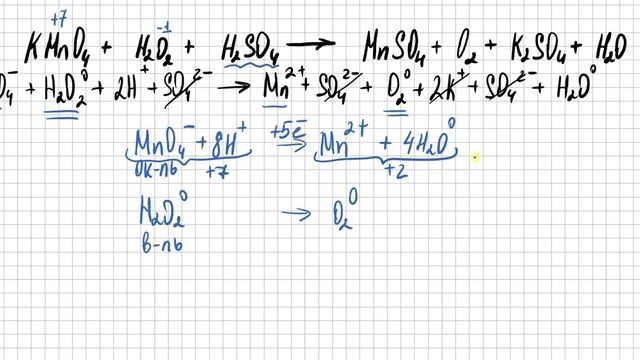 +7 -1
KMnO₄ + H₂O₂ + H₂SO₄ → MnSO₄ + O₂ + K₂SO₄ + H₂O
O₄⁻ + H₂O₂⁰ + 2H⁺ + SO₄²⁻ → Mn²⁺ + SO₄²⁻ + O₂⁰ + 2K⁺ + SO₄²⁻ + H₂O⁰
MnO₄⁻ + 8H⁺ +5ē → Mn²⁺ + 4H₂O⁰
ок-ль +7 +2
H₂O₂⁰ → O₂⁰
в-ль